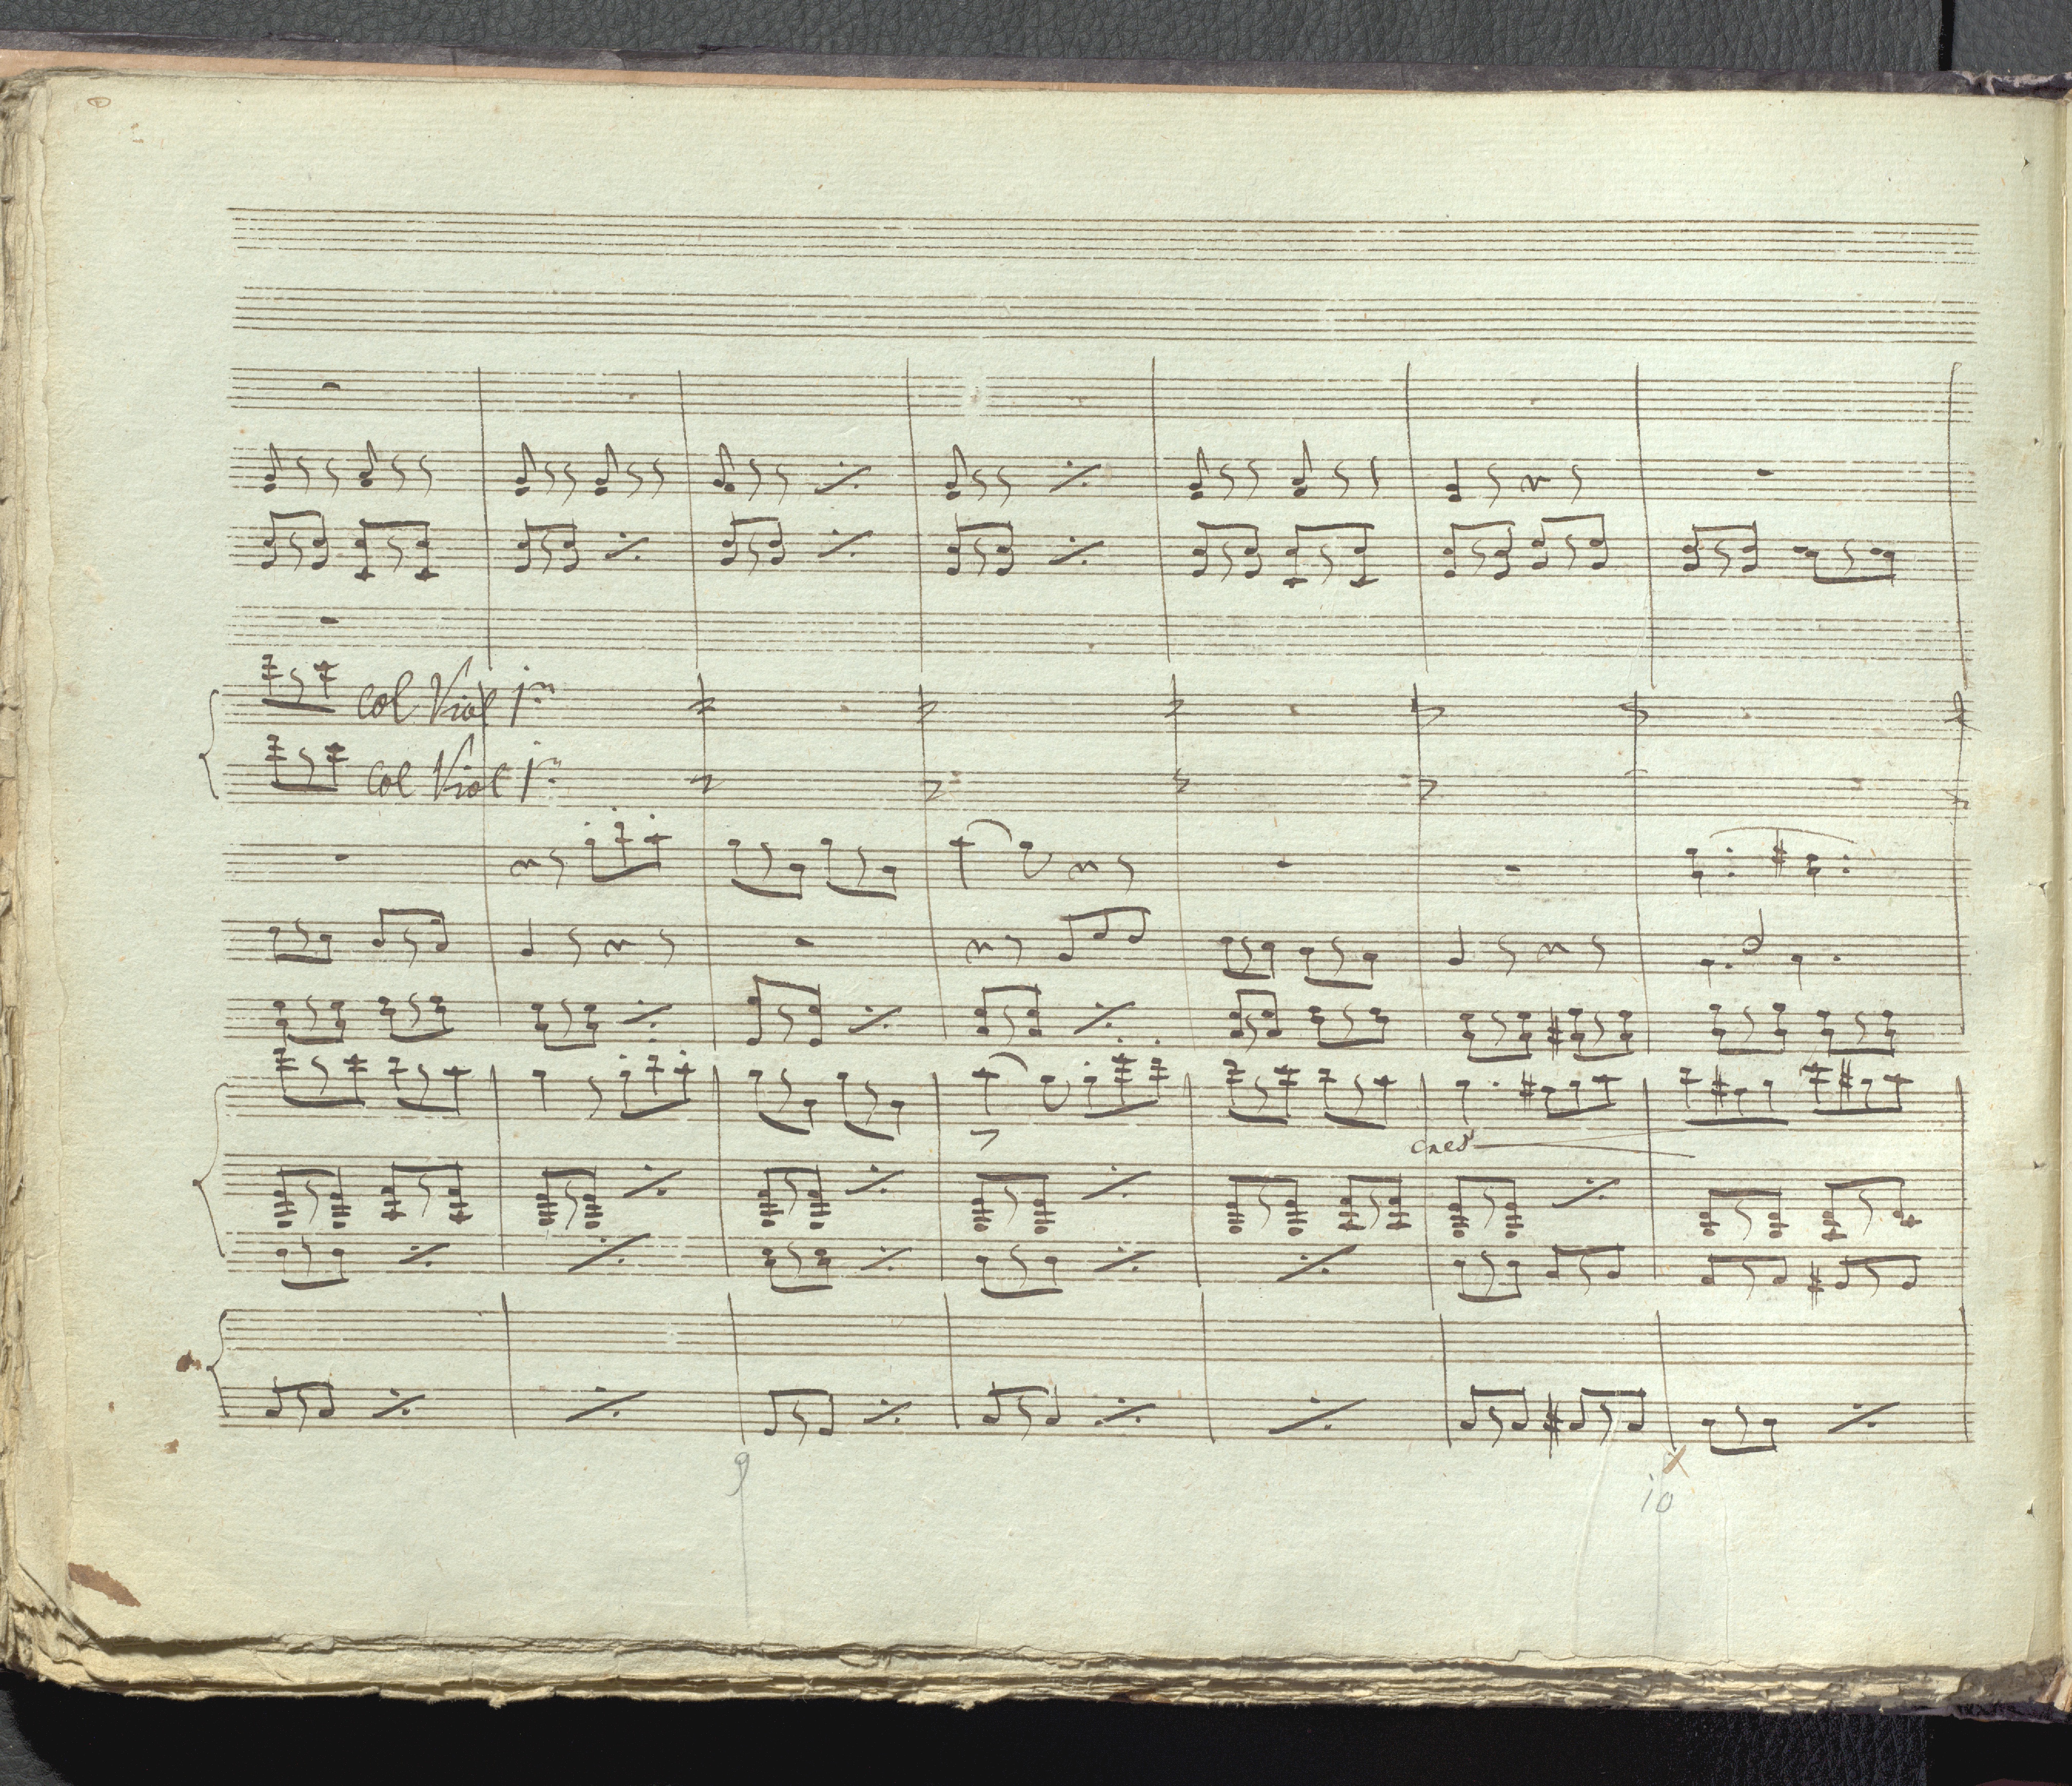 col Viol 1mo
col Viol 1o
cresc
9
10